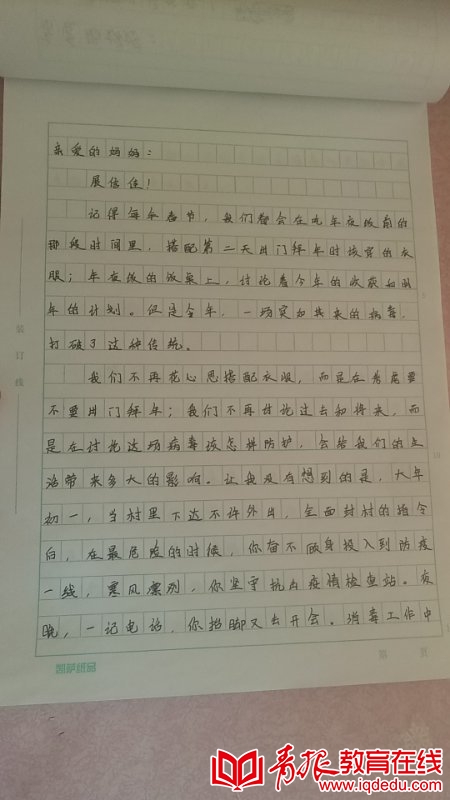 亲爱的妈妈：
展信佳！
记得每年春节，我们都会在吃年夜饭前的
那段时间里，搭配第二天出门拜年时该穿的衣
服；年夜饭的饭桌上，讨论着今年的收获和明
年的计划。但是今年，一场突如其来的病毒，
打破了这种传统。
我们不再花心思搭配衣服，而是在考虑要
不要出门拜年；我们不再讨论过去和将来，而
是在讨论这场病毒该怎样防护，会给我们的生
活带来多大的影响。让我没有想到的是，大年
初一，当村里下达不许外出，全面封村的指令
后，在最危险的时候，你奋不顾身投入到防疫
一线，寒风凛冽，你坚守抗击疫情检查站。夜
晚，一记电话，你抬脚又去开会。消毒工作中
装订线
5
10
第 页
青报教育在线
www.iqdedu.com